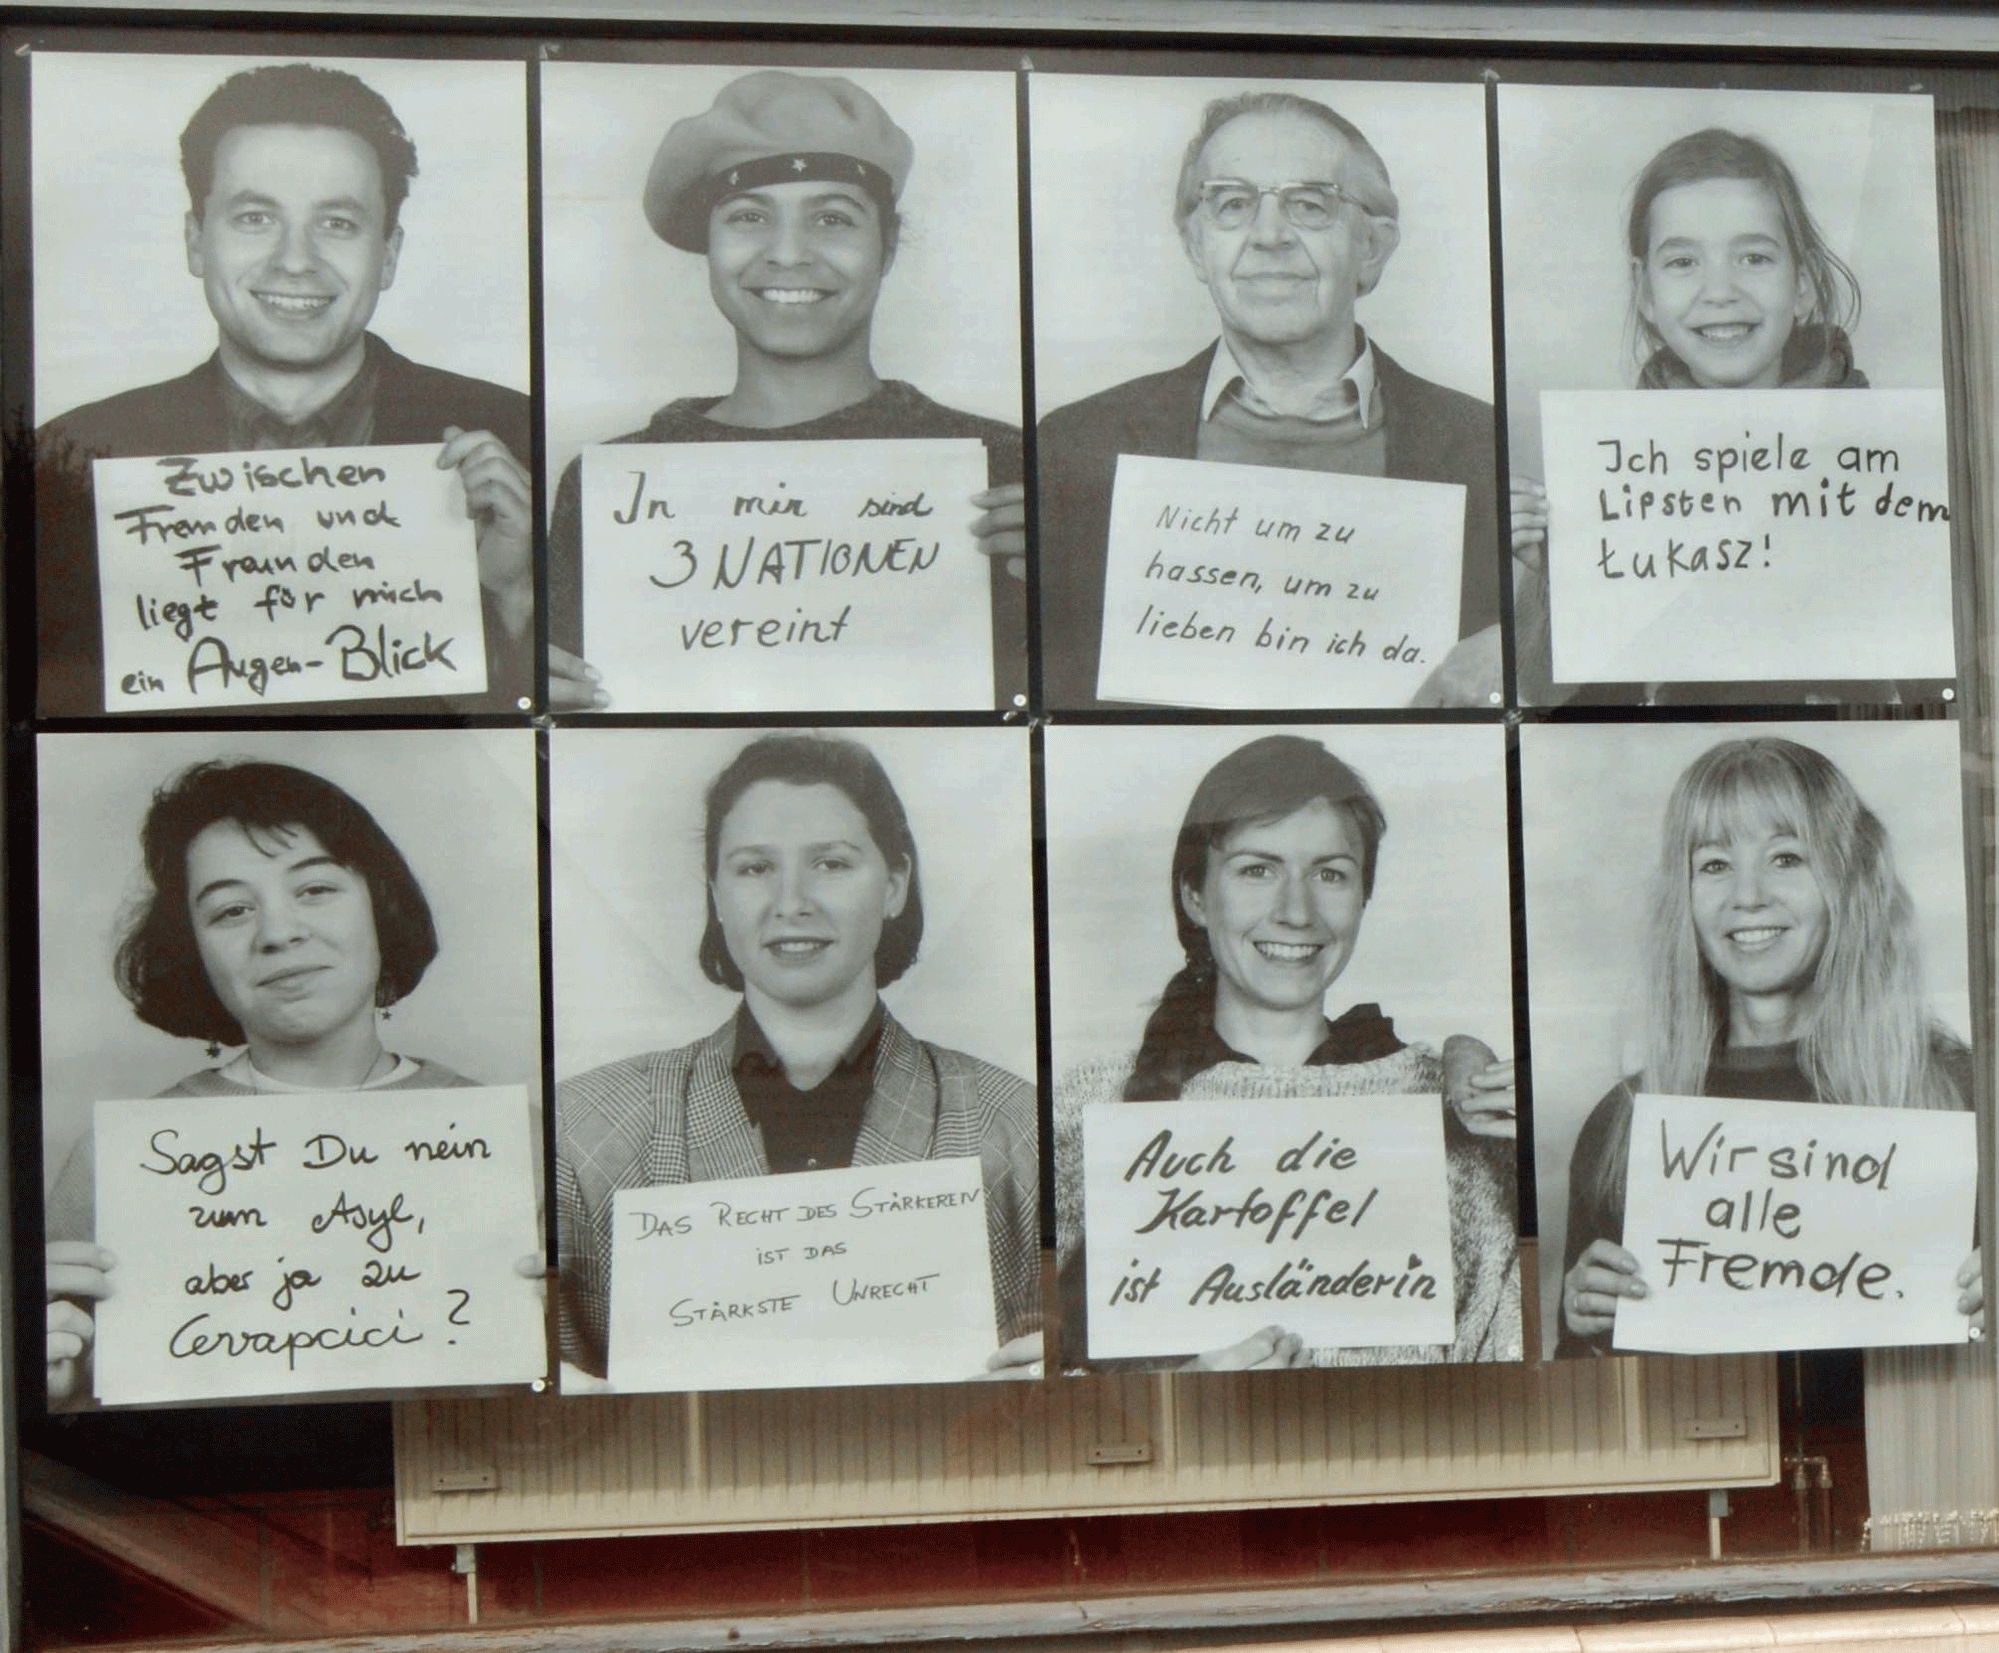 Zwischen
Fremden und
Freunden
liegt für mich
ein Augen-Blick
In mir sind
3 NATIONEN
vereint
Nicht um zu
hassen, um zu
lieben bin ich da.
Ich spiele am
Lipsten mit dem
Łukasz!
Sagst Du nein
zum Asyl,
aber ja zu
Cevapcici?
DAS RECHT DES STÄRKEREN
IST DAS
STÄRKSTE UNRECHT
Auch die
Kartoffel
ist Ausländerin
Wir sind
alle
Fremde.